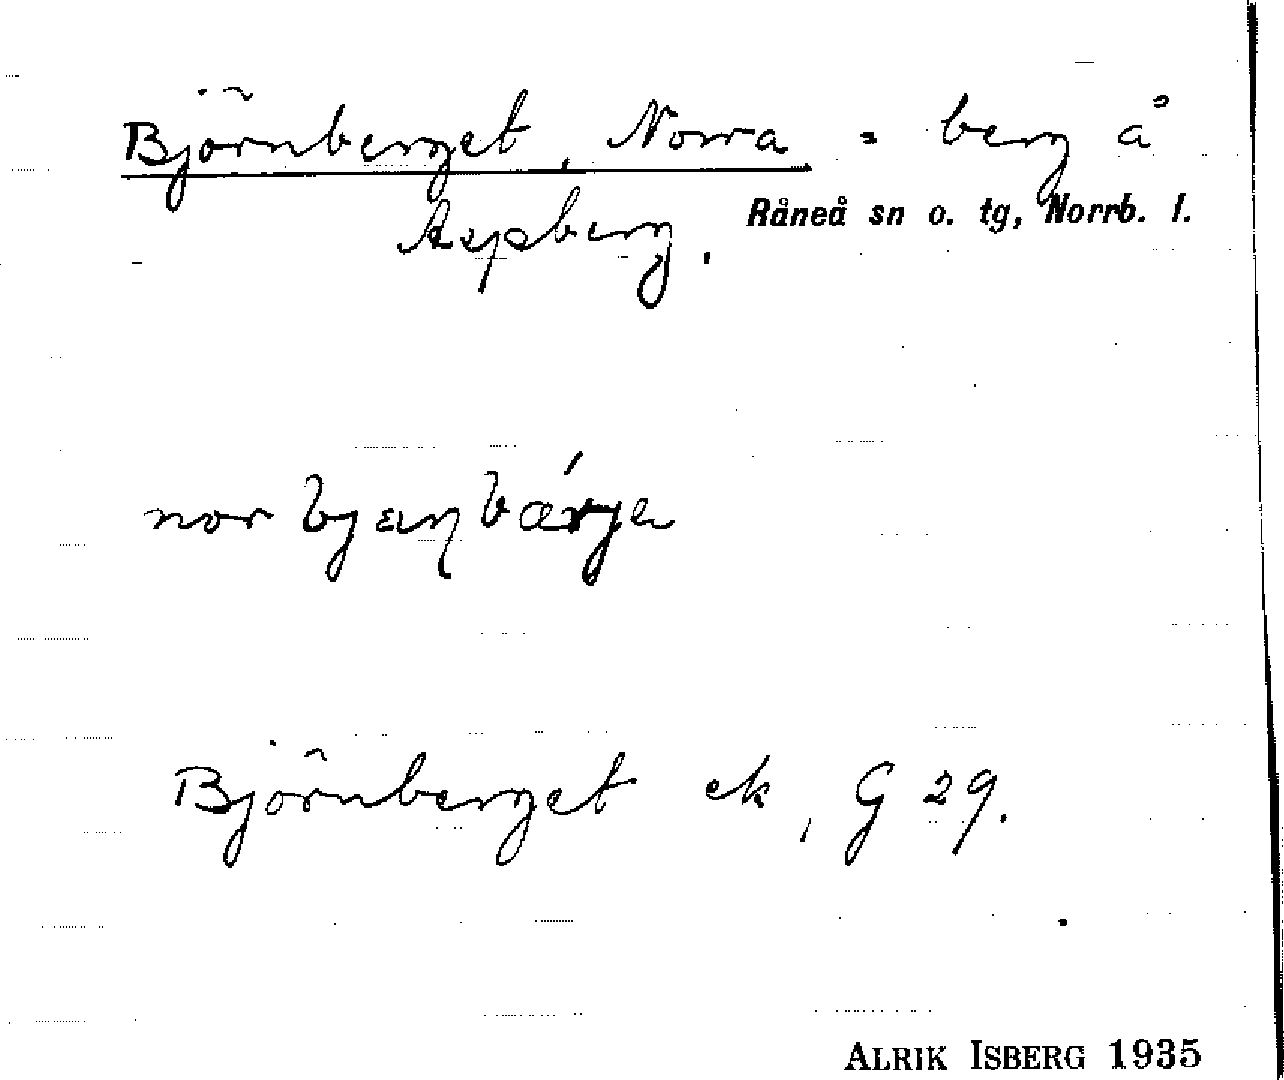 Björnberget, Norra = berg å
Aspberg.
Råneå sn o. tg, Norrb. l.
nor
Björnberget ek, G 29.
ALRIK ISBERG 1935